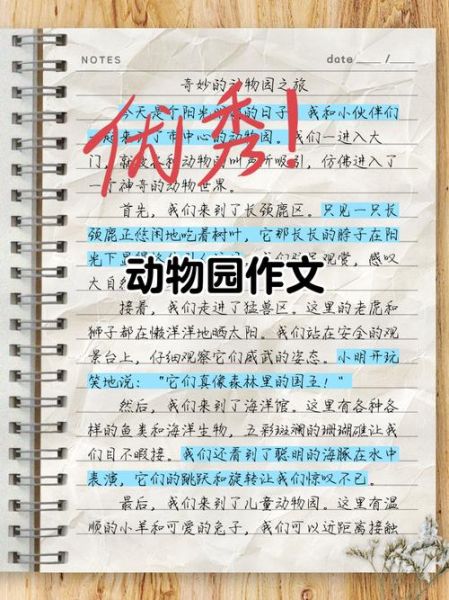 NOTES
date ___/___
奇妙的动物园之旅
今天是个阳光的日子，我和小伙伴们
来市中心的动物园。我们一进入大
门，就被各种动物的叫声所吸引，仿佛进入了
一个神奇的动物世界。
首先，我们来到了长颈鹿区。只见一只长
颈鹿正悠闲地吃着树叶，它那长长的脖子在阳
光下显得，感叹
大自
接着，我们走进了猛兽区。这里的老虎和
狮子都在懒洋洋地晒太阳。我们站在安全的观
景台上，仔细观察它们威武的姿态。小明开玩
笑地说："它们真像森林里的国王！"
然后，我们来到了海洋馆。这里有各种各
样的鱼类和海洋生物，五彩斑斓的珊瑚礁让我
们目不暇接。我们还看到了聪明的海豚在水中
表演，它们的跳跃和旋转让我们惊叹不已。
最后，我们来到了儿童动物园。这里有温
顺的小羊和可爱的兔子，我们可以近距离接触
优秀！
动物园作文